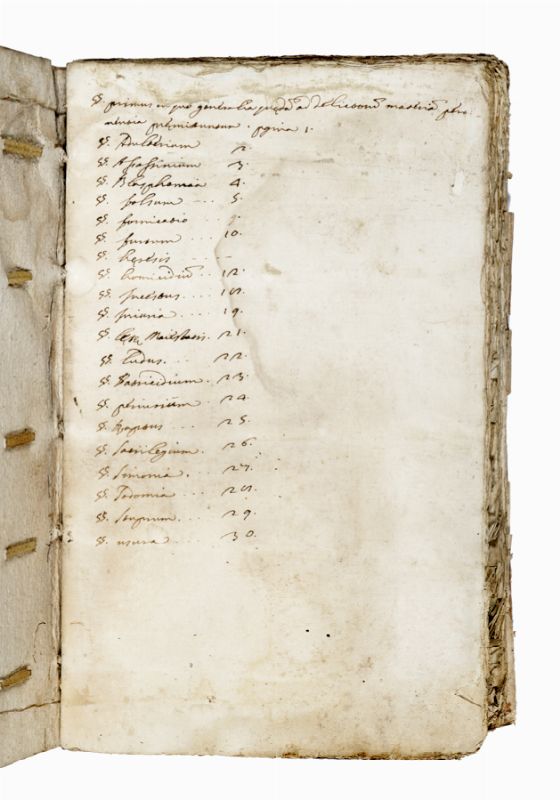 §. primus in quo generalia quædā ad delictorū materiā
premittuntur. pgina 1.
§. Adulterium 2.
§. Assassinium 3.
§. Blasphemia 4.
§. falsum ... 5.
§. fornicatio ..
§. furtum ... 10.
§. heresis ... -
§. homicidiū .. 12.
§. incestus ...
§. iniuria ... 19.
§. lesæ Maiestatis. 21.
§. ludus. ... 22.
§. Parricidium. 23.
§. periurium .. 24.
§. Raptus ... 25.
§. Sacrilegium. 26.
§. simonia ... 27.
§. Sodomia ... 28.
§. stuprum. ... 29.
§. usura ... 30.